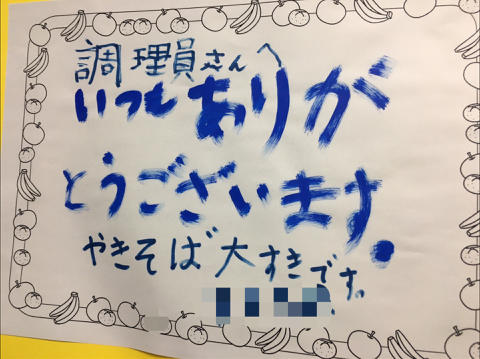 調理員さんへ
いつもありが
とうございます。
やきそば大すきです。